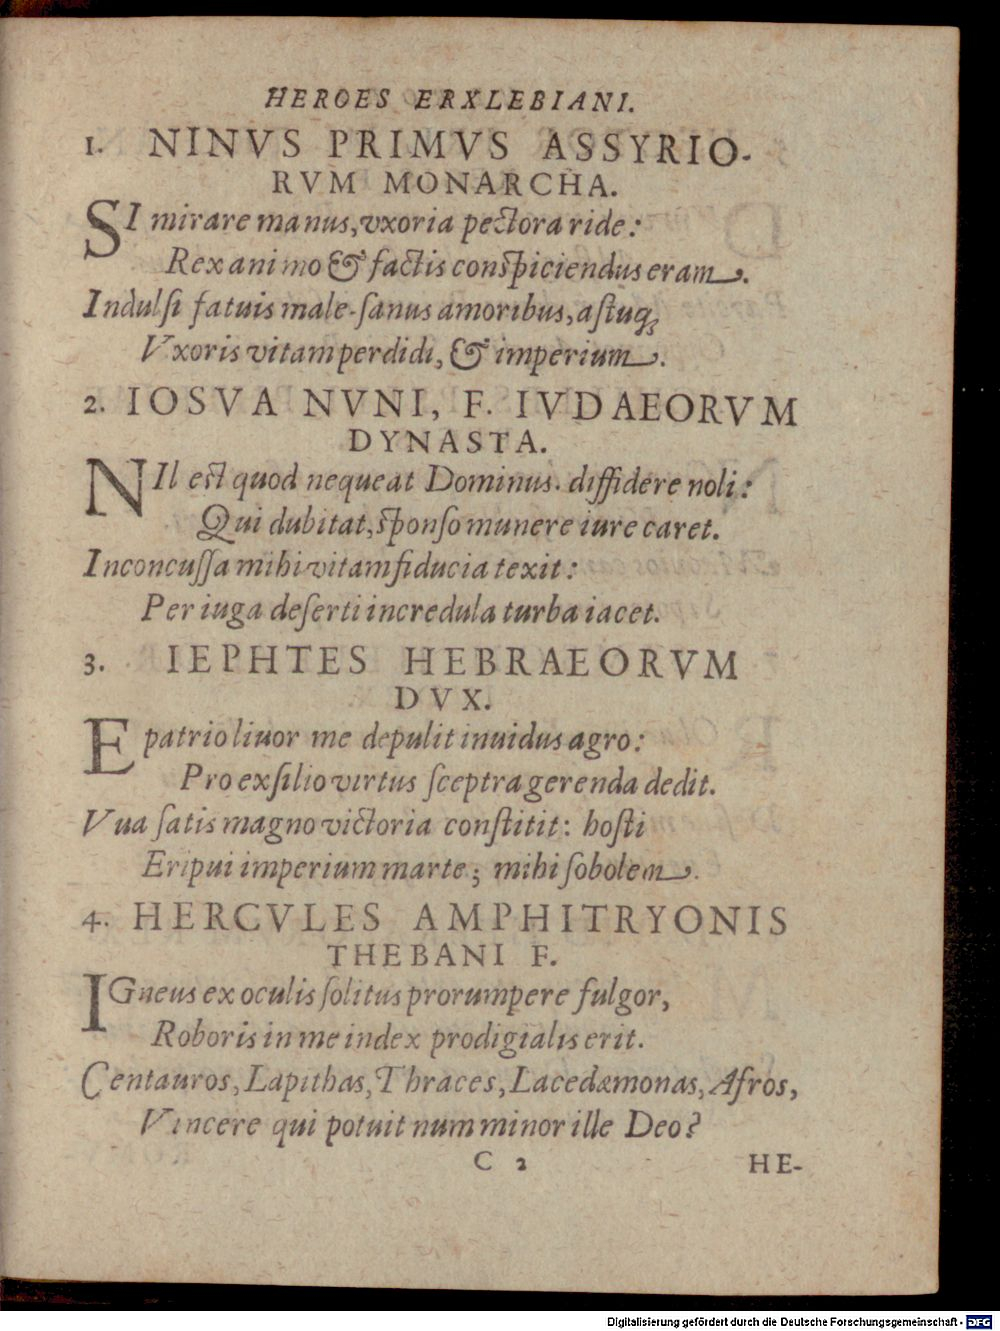 HEROES ERXLEBIANI.
1. NINVS PRIMVS ASSYRIO-
RVM MONARCHA.
SI mirare manus, vxoria pectora ride:
Rex animo & factis conspiciendus eram.
Indulsi fatuis male-sanus amoribus, astuq́;
Vxoris vitam perdidi, & imperium.
2. IOSVA NVNI, F. IVDAEORVM
DYNASTA.
NIl est quod nequeat Dominus. diffidere noli:
Qui dubitat, sponso munere iure caret.
Inconcussa mihi vitam fiducia texit:
Per iuga deserti incredula turba iacet.
3. IEPHTES HEBRAEORVM
DVX.
E patrio liuor me depulit inuidus agro:
Pro exsilio virtus sceptra gerenda dedit.
Vua satis magno victoria constitit: hosti
Eripui imperium marte; mihi sobolem.
4. HERCVLES AMPHITRYONIS
THEBANI F.
IGneus ex oculis solitus prorumpere fulgor,
Roboris in me index prodigialis erit.
Centauros, Lapithas, Thraces, Lacedæmonas, Afros,
Vincere qui potuit num minor ille Deo?
C 2
HE-
Digitalisierung gefördert durch die Deutsche Forschungsgemeinschaft - DFG